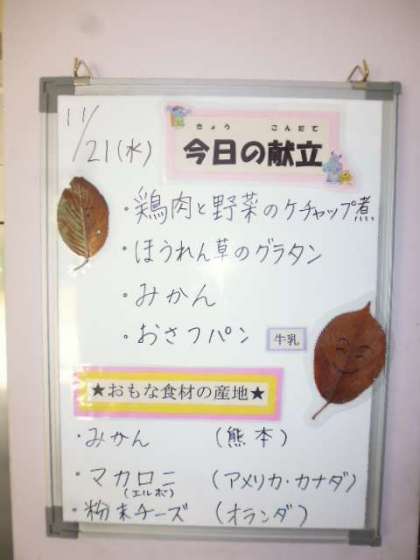 11/21(水)
きょう こんだて
今日の献立
・鶏肉と野菜のケチャップ煮
・ほうれん草のグラタン
・みかん
・おさつパン 牛乳
★おもな食材の産地★
・みかん (熊本)
・マカロニ (アメリカ・カナダ)
(エルボ)
・粉末チーズ (オランダ)